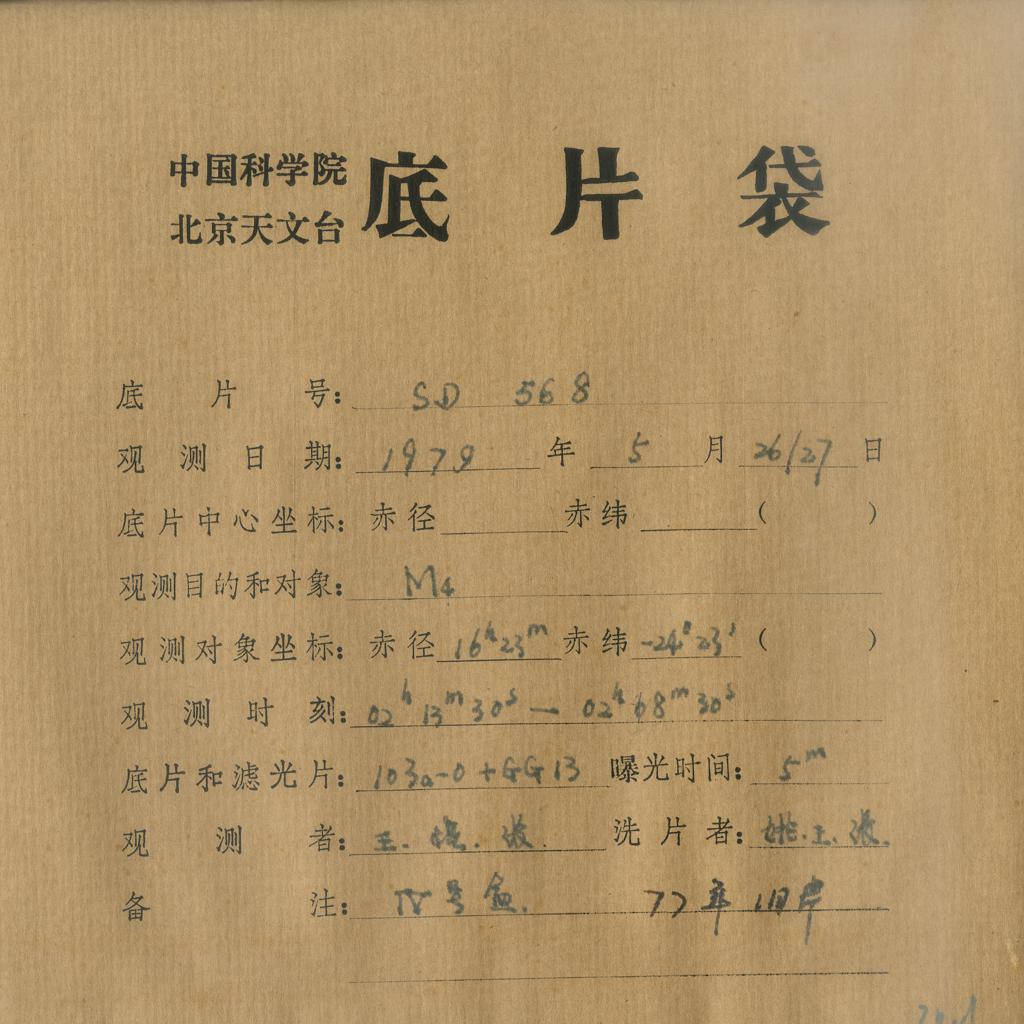 中国科学院
北京天文台
底片袋
底片号: SD 568
观测日期: 1979年5月26/27日
底片中心坐标: 赤径 赤纬 ( )
观测目的和对象: M4
观测对象坐标: 赤径 16h23m 赤纬 -24°23′ ( )
观测时刻: 02h13m30s — 02h68m30s
底片和滤光片: 103a-0+GG13 曝光时间: 5m
观测者: 王. 波. 洗片者: 姚. 王. 波.
备注: IV号盒. 77年旧片